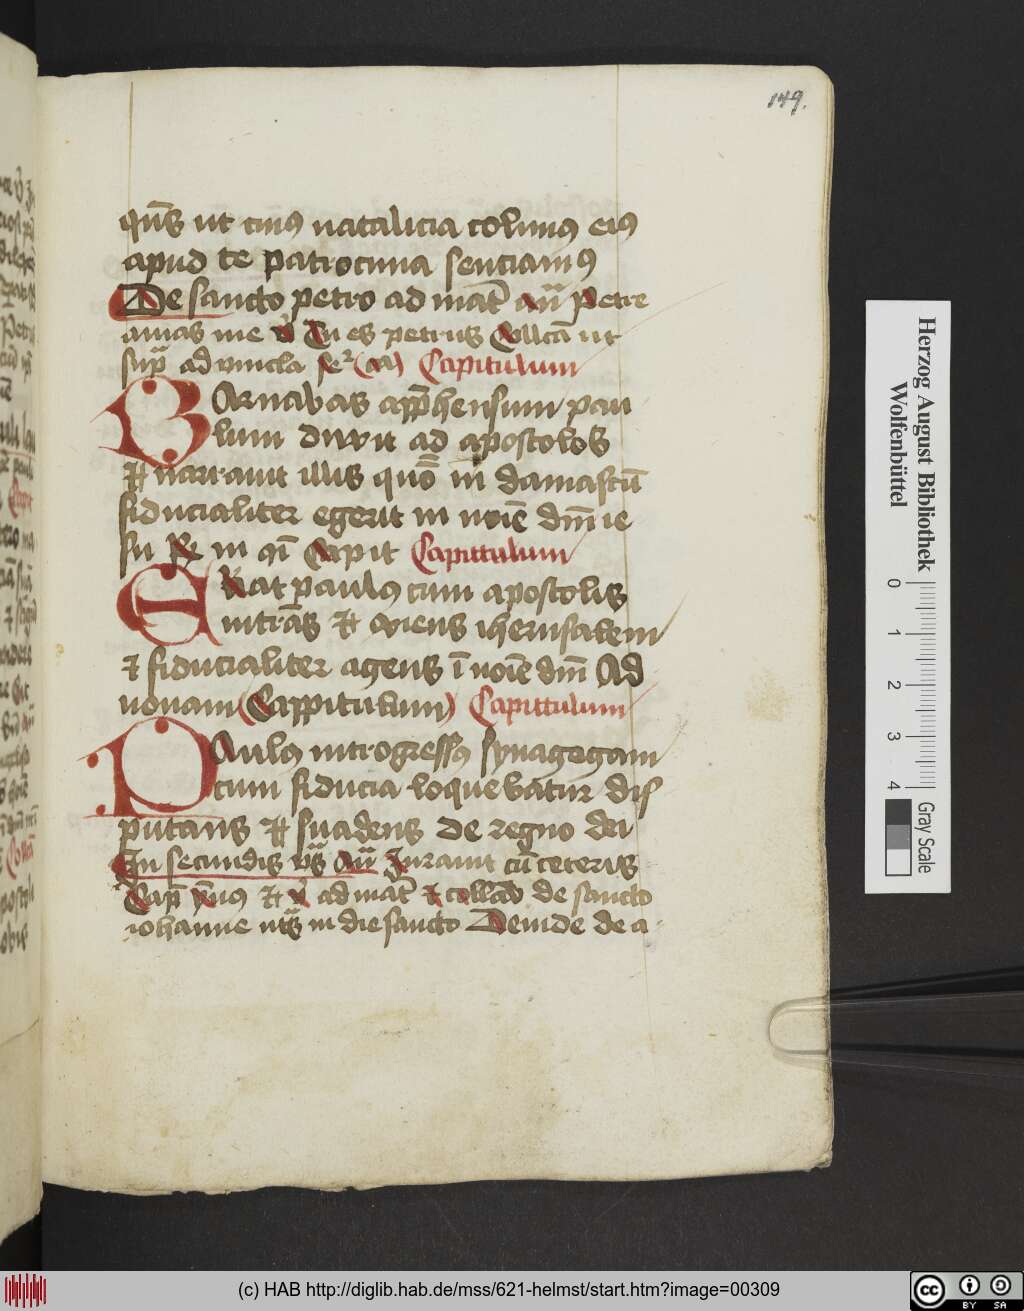 149.
qs̄ ut cuius natalicia colimus eius
apud te patrocinia senciamus
De sancto petro ad mat̄ añ Petre
amas me v̄ Tu es petrus Collcā ut
sup̄ ad vincla Capitulum
Barnabas app̄hensum pau
lum duxit ad apostolos
et narrauit illis quō in damascū
fiducialiter egerit in noīe dn̄i ie
su R in qī Capit Capittulum
Erat paulus cum apostolis
intrās et exiens iherusalem
et fiducialiter agens ī noīe dn̄i Ad
nonam Cappitulum Capittulum
Paulus introgressus synagogam
cum fiducia loquebatur dis
putans et suadens de regno dei
In secundis vs̄ Añ Iurauit cū ceteris
Cap̄ ymnus et v̄ ad mat̄ et collād de sancto
iohanne uts̄ in die sancto Deinde de a
Herzog August Bibliothek
Wolfenbüttel
0 1 2 3 4
Gray Scale
(c) HAB http://diglib.hab.de/mss/621-helmst/start.htm?image=00309
cc BY SA